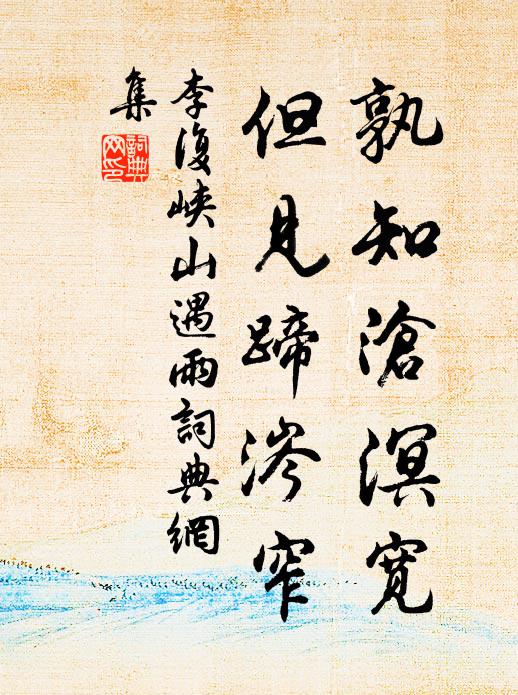 孰知滄溟寬
但見蹄涔窄
李復峽山遇雨詞典網
集
詞典網印